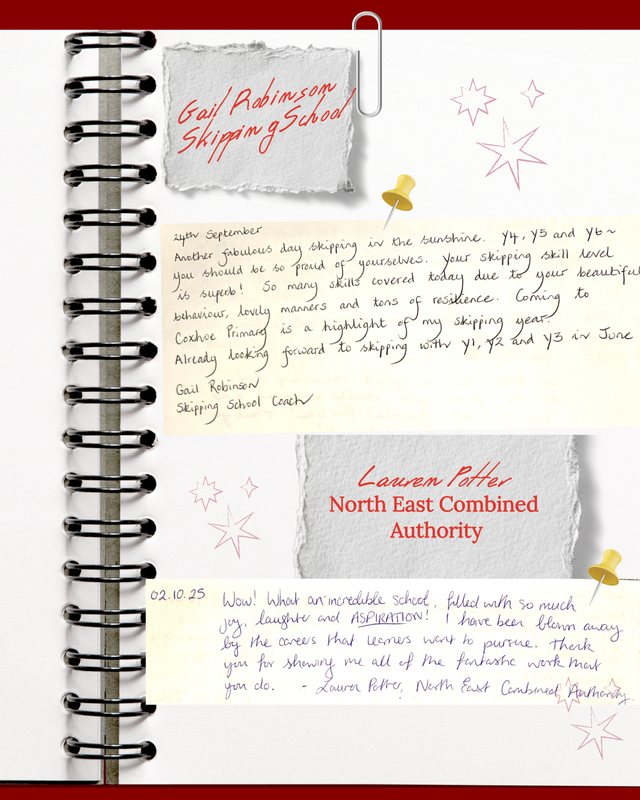 Gail Robinson
Skipping School
24th September
Another fabulous day skipping in the sunshine. Y4, Y5 and Y6 ~
you should be so proud of yourselves. Your skipping skill level
is superb! So many skills covered today due to your beautiful
behaviour, lovely manners and tons of resilience. Coming to
Coxhoe Primary is a highlight of my skipping year.
Already looking forward to skipping with Y1, Y2 and Y3 in June
Gail Robinson
Skipping School Coach
Lauren Potter
North East Combined
Authority
02.10.25
Wow! What an incredible school, filled with so much
joy, laughter and ASPIRATION! I have been blown away
by the careers that learners want to pursue. Thank
you for showing me all of the fantastic work that
you do. - Lauren Potter, North East Combined Authority